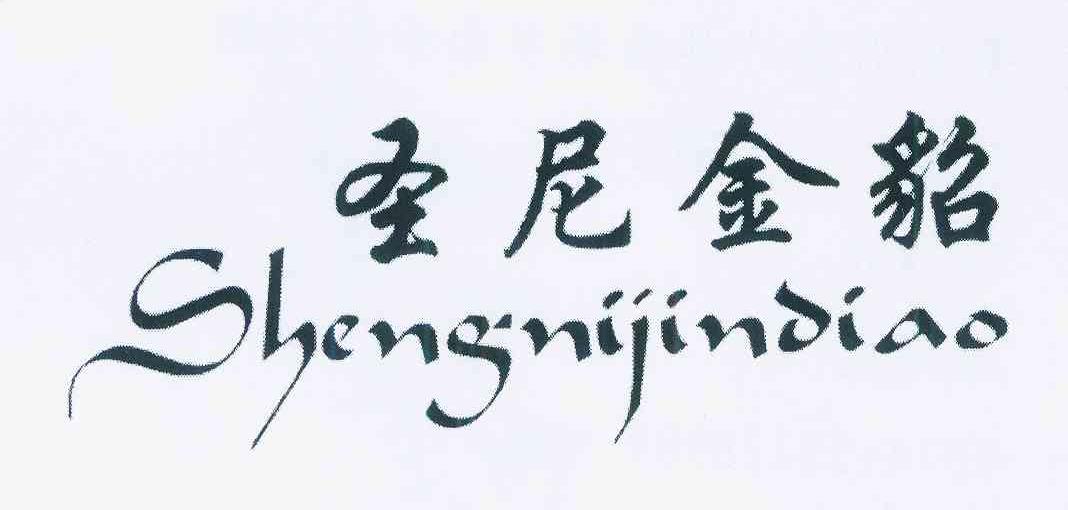 圣尼金貂
Shengnijindiao